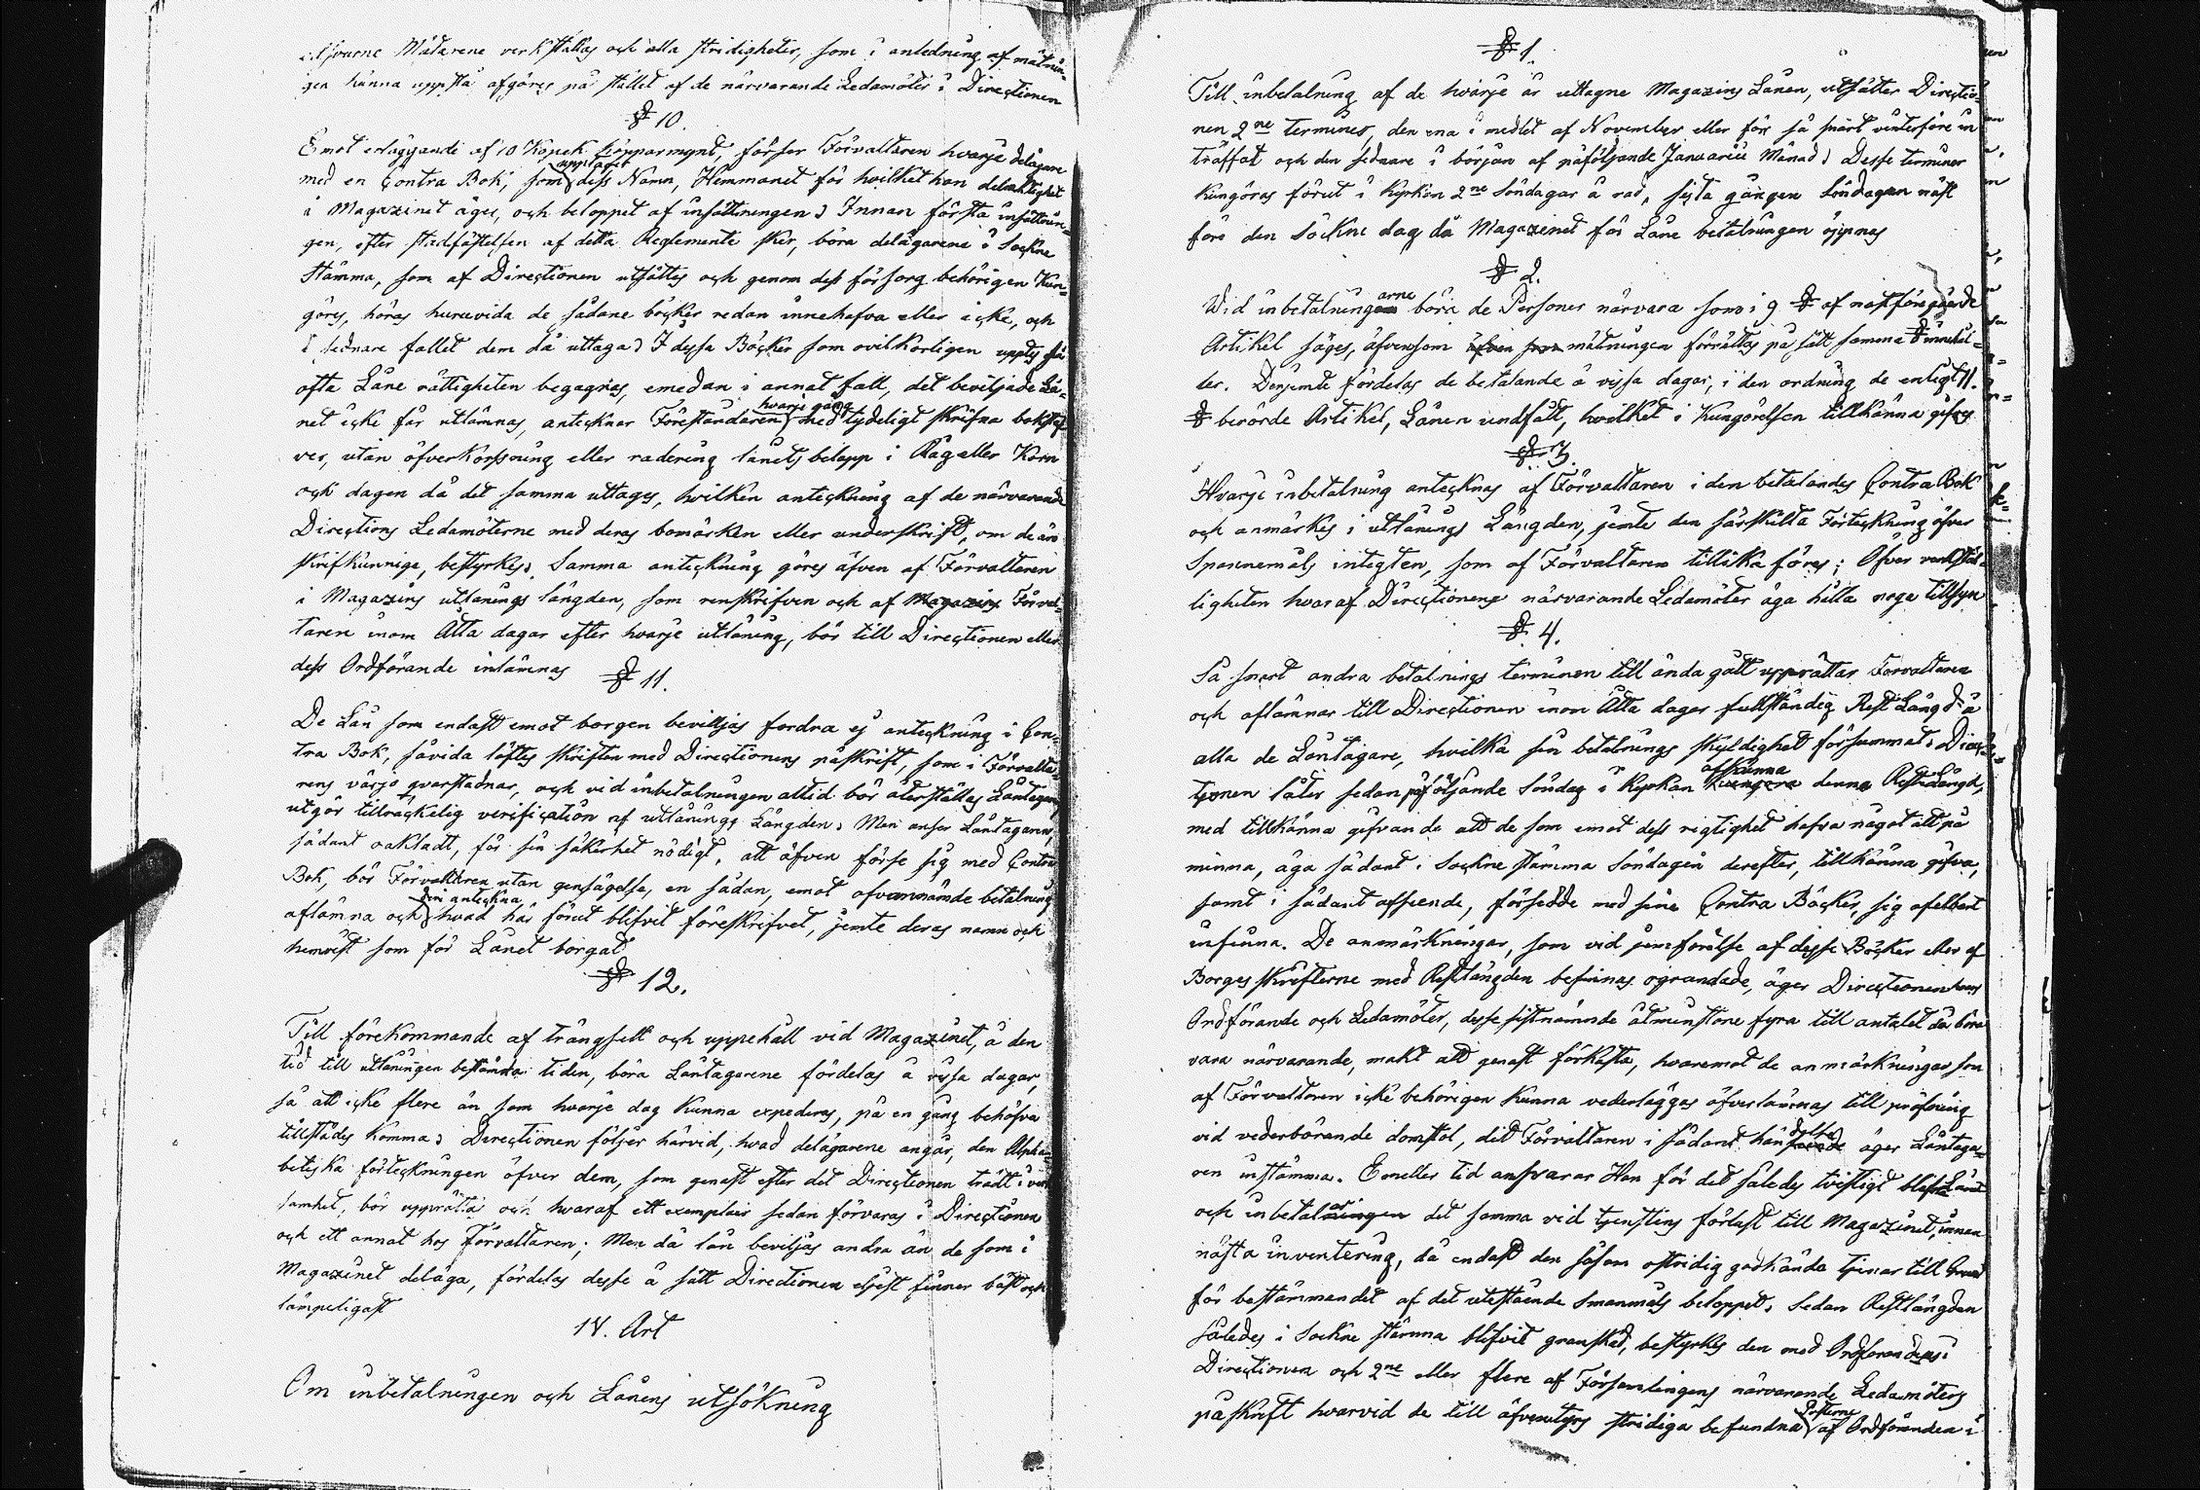 svurne Mätarene verkställas och alla stridigheter, som i anledning af mätnin-
gen kunna uppstå afgöres på stället af de närvarande Ledamöter i Directionen
§ 10.
Emot erläggande af 10 Kopek kopparmynt, förser Förvaltaren hvarje delägare
med en Contra Bok, som upptager dess Namn, Hemmanet för hvilket han delaktighet
i Magazinet äger, och beloppet af insättningen; Innan första insättnin-
gen, efter stadfästelsen af detta Reglemente sker, böra delägarene i Sockne
Stämma, som af Directionen utsättes och genom dess försorg behörigen Kun-
göres, höras huruvida de sådane böcker redan innehafva eller icke, och
i sednare fallet dem då uttaga; I dessa Böcker som ovilkorligen uppvisas så
ofta Låne rättigheten begagnas, emedan i annat fall, det beviljade Lå-
net icke får utlämnas, antecknar Föreståndaren hvarje gång med tydeligt skrifna bokstäf-
ver, utan öfverkorssning eller radering lånets belopp i Råg eller Korn
och dagen då det samma uttages, hvilken anteckning af de närvarande
Directions Ledamöterne med deras bomärken eller underskrift, om de äro
skrifkunnige, bestyrkes; Samma anteckning göres äfven af Förvaltaren
i Magazins utlånings längden, som renskrifven och af Magazins Förval-
taren inom Åtta dagar efter hvarje utlåning, bör till Directionen eller
dess Ordförande inlämnas
§ 11.
De Lån som endast emot borgen beviljas fordra ej anteckning i Con-
tra Bok, såvida löftes skriften med Directionens påskrift, som i Förvalta-
rens värjo qvarstadnar, och vid inbetalningen alltid bör återställas Låntagaren
utgör tillräckelig verification af utlånings Längden; Men anser Låntagaren,
sådant oaktadt, för sin säkerhet nödigt, att äfven förse sig med Contra
Bok, bör Förvaltaren utan gensägelse, en sådan, emot ofvannämnde betalning
aflämna och deri anteckna hvad här förut blifvit föreskrifvet, jemte deras namn och
hemvist som för Lånet borgat
§ 12.
Till förekommande af trängsell och uppehåll vid Magazinet, å den
tid till utlåningen bestämda tiden, böra Låntagarene fördelas å vissa dagar,
så att icke flere än som hvarje dag Kunna expederas, på en gång behöfva
tillstädes Komma; Directionen följer härvid, hvad delägarene angår, den Alpha-
betiska förteckningen öfver dem, som genast efter det Directionen trädt i verk-
samhet, bör upprättas och hvaraf ett exemplair sedan förvaras i Directionen
och ett annat hos Förvaltaren; Men då lån beviljas andra än de som i
Magazinet deläga, fördelas desse å sätt Directionen elljest finner bäst och
lämpeligast
IV. Art
Om inbetalningen och Lånens utsökning
§ 1.
Till inbetalning af de hvarje år uttagne Magazins Lånen, utsätter Directio-
nen 2ne terminer, den ena i medlet af November eller för så snart vinterföre in
träffat och den sednare i början af påföljande Januarii Månad; Desse terminer
Kungöras förut i Kyrkan 2ne Söndagar å rad, sista gången Söndagen näst
före den Söckne dag då Magazinet för Låne betalningen öppnas
§ 2.
Wid inbetalningarne böra de Personer närvara som i 9 § af nästföregående
Artikel säges, äfvensom mätningen förrättas på sätt samma § innehål-
ler. Densemte fördelas de betalande å vissa dagar, i den ordning de enligt 11.
§ berörde Artikel, Lånen undfått, hvilket i Kungörelsen tillkänna gifves
§ 3.
Hvarje inbetalning antecknas af Förvaltaren i den betalandes Contra Bok
och anmärkes i utlånings Längden, jemte den särskilta Förteckning öfver
Spannemåls intägten, som af Förvaltaren tillika föres; Öfver verkstäl-
ligheten hvaraf Directionens närvarande Ledamöter äga hålla noga tillsyn
§ 4.
Så snart andra betalnings terminen till ända gått upprättar Förvaltaren
och aflämnar till Directionen inom Åtta dagar fullständig Rest Längd å
alla de Låntagare, hvilka sin betalnings skyldighet försummat; Direc-
tionen låter sedan påföljande Söndag i Kyrkan afkänna denna Restlängd,
med tillkänna gifvande att de som emot dess rigtighet hafva något att på
minna, äga sådant i Sockne stämma Söndagen derefter, tillkänna gifva,
samt i sådant afseende, försedde med sine Contra Böcker, sig ofelbart
infinna. De anmärkningar, som vid jemförelse af desse Böcker eller af
Borges skrifterne med Restlängden befinnas ogrundade, äger Directionens
Ordförande och Ledamöter, desse sistnämnde åtminstone fyra till antalet då böra
vara närvarande, makt att genast förkasta, hvaremot de anmärkningar som
af Förvaltaren icke behörigen Kunna vederläggas öfverlämnas till pröfning
vid vederbörande domstol, dit Förvaltaren i sådant hänseende äger Låntaga-
ren instämma. Emeller tid ansvarar Han för det således tvistigt blefne Lånet
och inbetalar det samma vid tjenstens förlust till Magazinet, innan
nästa inventering, då endast den såsom ostridig godkände tjenar till Grund
för bestämmandet af det utestående Spanmåls beloppet; Sedan Restlängden
således i Sockne stämma blifvit granskad, bestyrkes den med Ordförandens i
Directionen och 2ne eller flere af Församlingens närvarande Ledamöters
påskrift hvarvid de till äfventyrs stridiga befundna Posterne af Ordföranden i